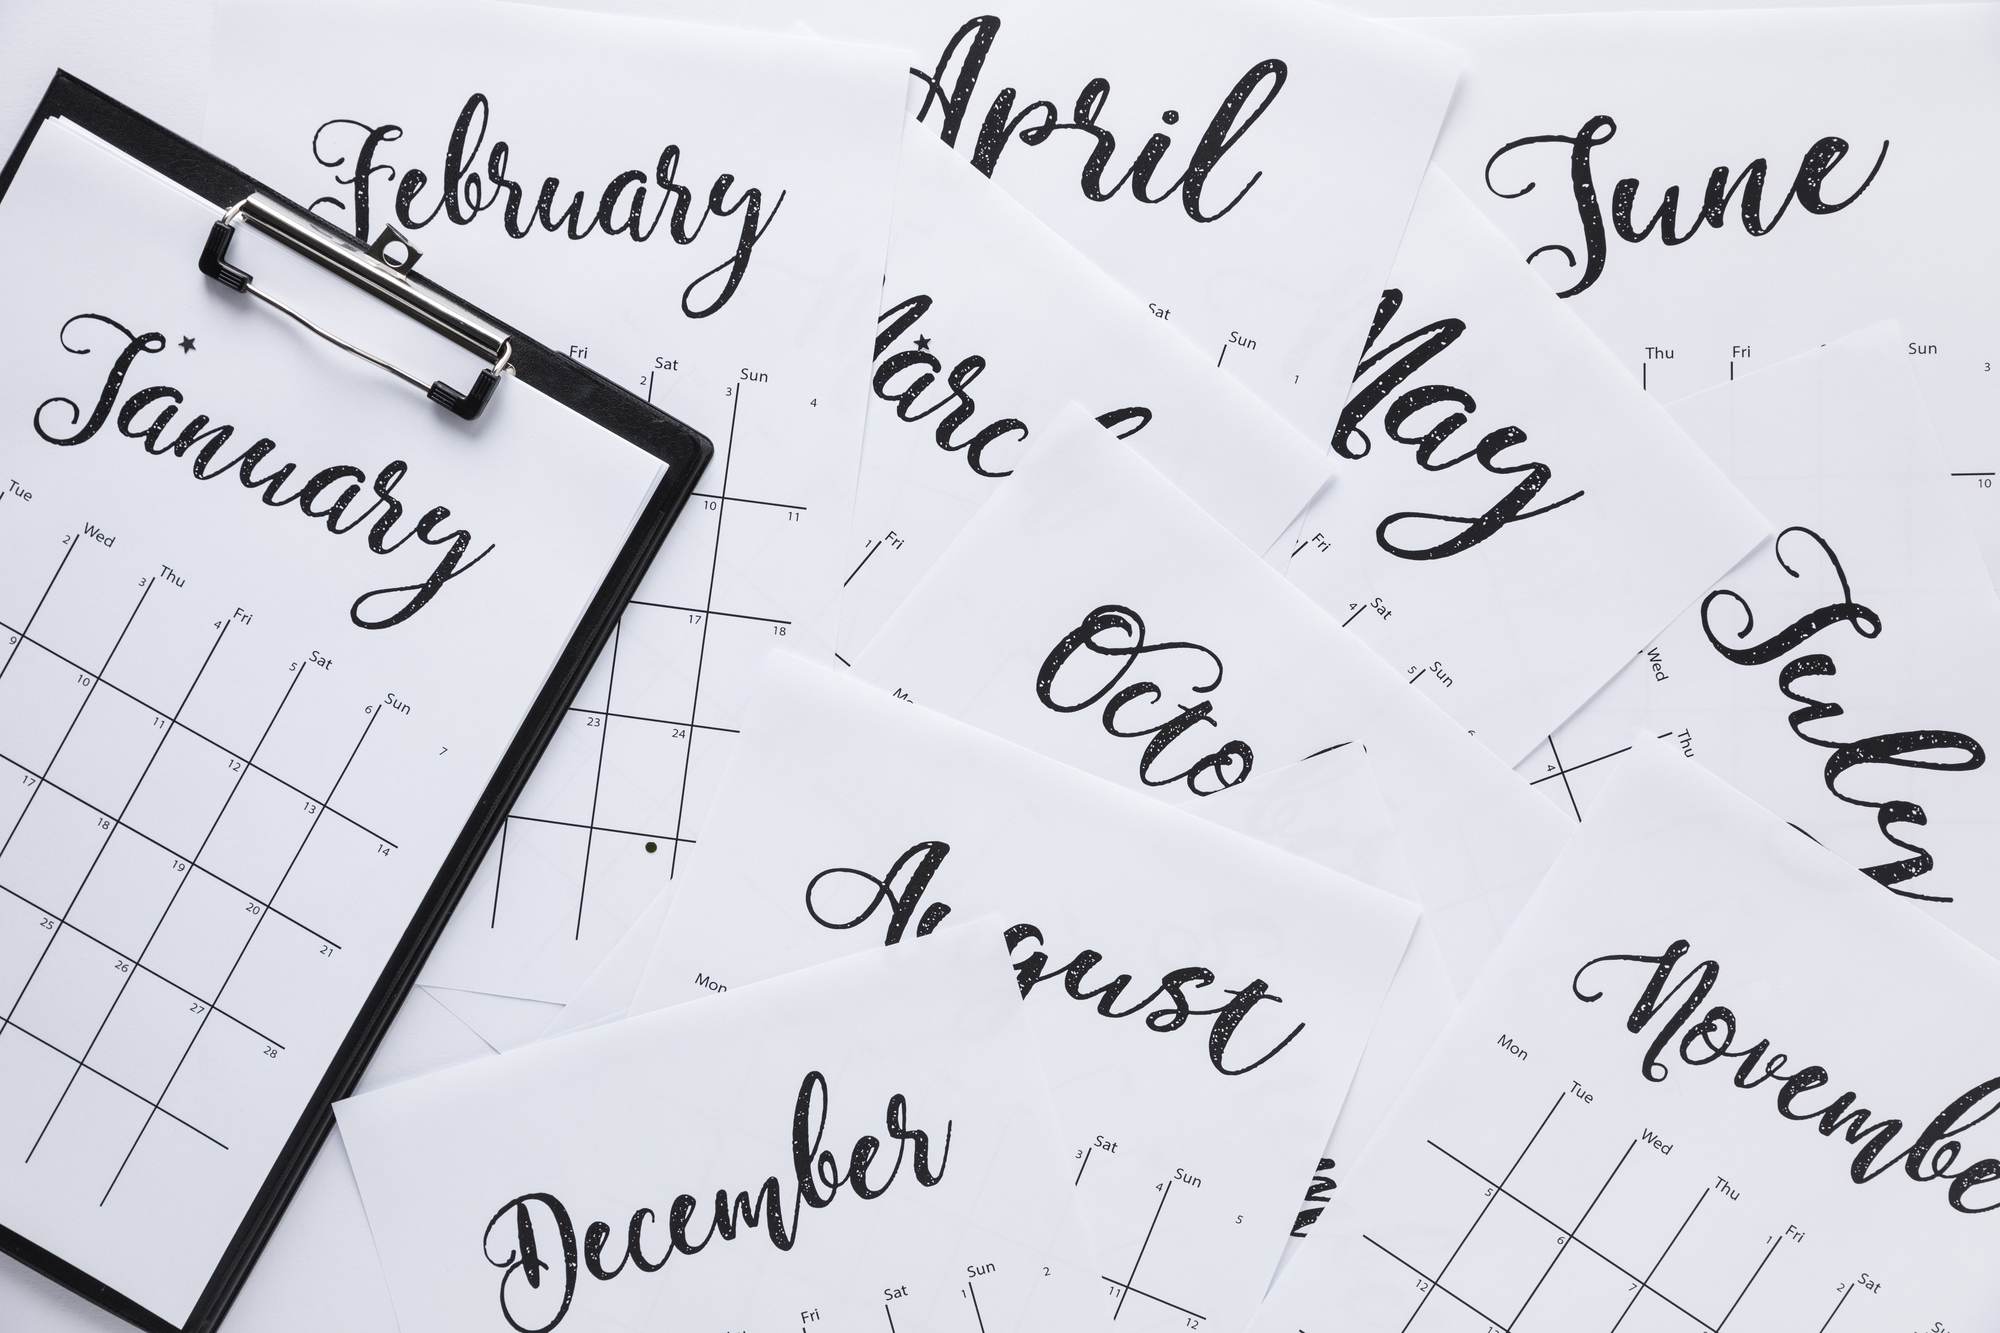 January
Tue Wed Thu Fri Sat Sun
2 3 4 5 6 7
9 10 11 12 13 14
17 18 19 20 21
25 26 27 28
February
Fri Sat Sun
2 3 4
10 11
17 18
23 24
April
Sat Sun
1
June
Thu Fri Sun
3
10
Marc
Fri
1
May
Fri Sat Sun
4 5 6
July
Wed Thu
4
Octo
August
Mon Sat Sun
3 4 5
11 12
November
Mon Tue Wed Thu Fri Sat
1 2
5 6 7
12
December
Fri Sat Sun
1 2